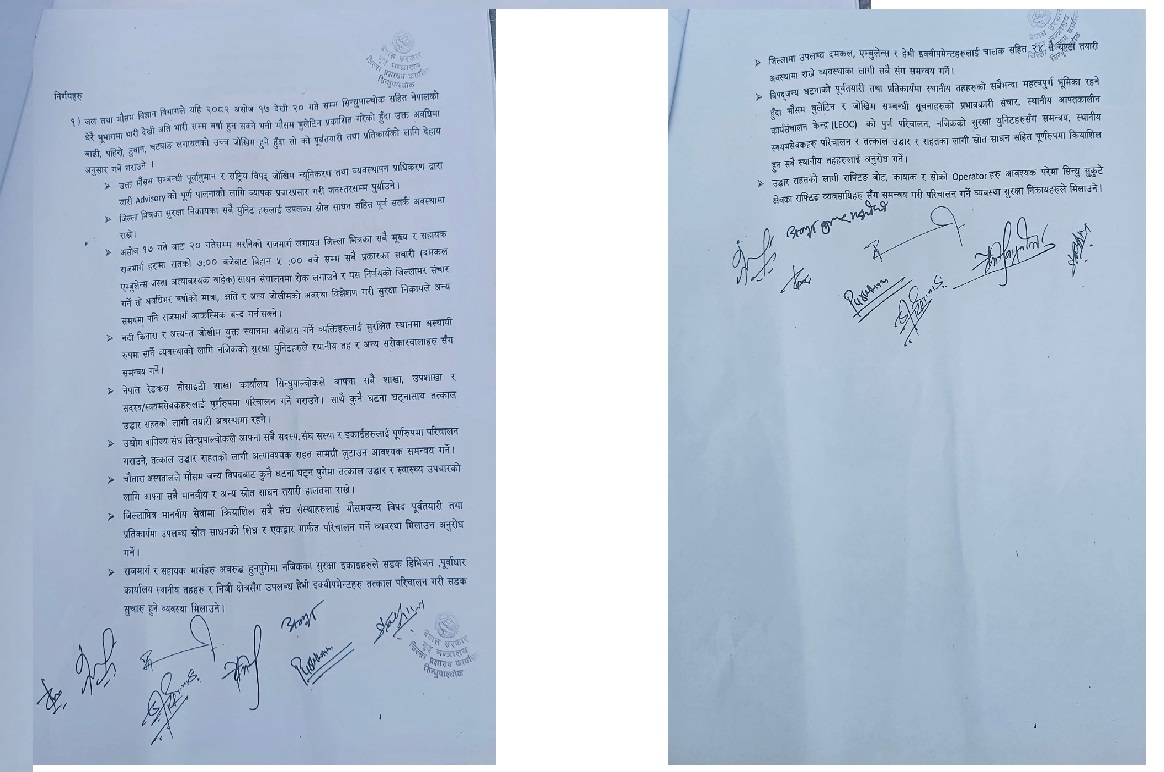 नेपाल सरकार
गृह मन्त्रालय
जिल्ला प्रशासन कार्यालय
सिन्धुपाल्चोक
निर्णयहरु
१) जल तथा मौसम विज्ञान विभागले यहि २०८२ असोज १७ देखी २० गते सम्म सिन्धुपाल्चोक सहित नेपालको
धेरै भूभागमा भारी देखी अति भारी सम्म बर्षा हुन सक्ने भनी मौसम बुलेटिन प्रकाशित गरेको हुँदा उक्त अवधिमा
बाढी, पहिरो, डुबान, चट्याङ लगायतको उच्च जोखिम हुने हुँदा सो को पूर्वतयारी तथा प्रतिकार्यको लागि देहाय
अनुसार गर्ने गराउने ।
➤ उक्त मौसम सम्बन्धी पूर्वानुमान र राष्ट्रिय विपद् जोखिम न्यूनिकरण तथा व्यवस्थापन प्राधिकरण द्वारा
जारी Advisory को पूर्ण पालनाको लागि व्यापक प्रचारप्रसार गरी जनस्तरसम्म पुर्याउने।
➤ जिल्ला भित्रका सुरक्षा निकायका सबै युनिट हरुलाई उपलब्ध स्रोत साधन सहित पूर्ण सतर्क अवस्थामा
राख्ने।
➤ असोज १७ गते बाट २० गतेसम्म अरनिको राजमार्ग लगायत जिल्ला भित्रका सबै मुख्य र सहायक
राजमार्ग हरुमा रातको ७:०० बजेबाट बिहान ५ :०० बजे सम्म सबै प्रकारका सवारी (दमकल
एम्बुलेन्स जस्ता अत्यावश्यक बाहेक) साधन संचालनमा रोक लगाउने र यस निर्णयको जिल्लाभर संचार
गर्ने तो अवधिभर बर्षाको मात्रा, क्षति र अन्य जोखीमको अवस्था विश्लेषण गरी सुरक्षा निकायले अन्य
समयमा पनि राजमार्ग आकस्मिक बन्द गर्न सक्ने।
➤ नदी किनारा र अत्यन्त जोखीम युक्त स्थानमा बसोबास गर्ने व्यक्तिहरुलाई सुरक्षित स्थानमा अस्थायी
रुपमा सार्ने व्यवस्थाको लागि नजिकको सुरक्षा युनिटहरुले स्थानीय तह र अन्य सरोकारवालाहरु सँग
समन्वय गर्ने।
➤ नेपाल रेडक्रस सोसाइटी शाखा कार्यालय सिन्धुपाल्चोकले आफ्ना सबै शाखा, उपशाखा र
सदस्य/स्वयमसेवकहरुलाई पुर्णरुपमा परिचालन गर्ने गराउने। साथै कुनै घटना घट्नासाथ तत्काल
उद्धार राहतको लागी तयारी अवस्थामा रहने।
➤ उद्योग बाणिज्य संघ सिन्धुपाल्चोकले आफ्ना सबै सदस्य,संघ संस्था र इकाईहरुलाई पूर्णरुपमा परिचालन
गराउने, तत्काल उद्धार राहतको लागी अत्यावश्यक राहत सामग्री जुटाउन आवश्यक समन्वय गर्ने।
➤ चौतारा अस्पतालले मौसम जन्य विपदबाट कुनै घटना घट्न पुगेमा तत्काल उद्धार र स्वास्थ्य उपचारको
लागि आफ्ना सबै मानवीय र अन्य स्रोत साधन तयारी हालतमा राख्ने।
➤ जिल्लाभित्र मानवीय सेवामा क्रियाशिल सबै संघ संस्थाहरुलाई मौसमजन्य विपद पूर्वतयारी तथा
प्रतिकार्यमा उपलब्ध स्रोत साधनको शिघ्र र एकद्वार मार्फत परिचालन गर्ने व्यवस्था मिलाउन अनुरोध
गर्ने।
➤ राजमार्ग र सहायक मार्गहरु अवरुद्ध हुनपुगेमा नजिकका सुरक्षा इकाइहरुले सडक डिभिजन ,पूर्वाधार
कार्यालय स्थानीय तहहरु र निजी क्षेत्रसँग उपलब्ध हेभी इक्वीपमेन्टहरु तत्काल परिचालन गरी सडक
सुचारु हुने व्यवस्था मिलाउने।
नेपाल सरकार
गृह मन्त्रालय
जिल्ला प्रशासन कार्यालय
सिन्धुपाल्चोक
➤ जिल्लामा उपलब्ध दमकल, एम्बुलेन्स र हेभी इक्वीपमेन्टहरुलाई चालक सहित २४ सै घण्टा तयारी
अवस्थामा राख्ने व्यवस्थाका लागी सबै संग समन्वय गर्ने।
➤ विपदजन्य घटनाको पूर्वतयारी तथा प्रतिकार्यमा स्थानीय तहहरुको सबैभन्दा महत्वपूर्ण भूमिका रहने
हुँदा मौसम बुलेटिन र जोखिम सम्बन्धी सूचनाहरुको प्रभावकारी संचार, स्थानीय आपतकालीन
कार्यसंचालन केन्द्र (LEOC) को पुर्ण परिचालन, नजिकको सुरक्षा युनिटहरुसँग समन्वय, स्थानीय
स्वयमसेवकहरु परिचालन र तत्काल उद्धार र राहतका लागी स्रोत साधन सहित पूर्णरुपमा क्रियाशिल
हुन सबै स्थानीय तहहरुलाई अनुरोध गर्ने।
➤ उद्धार राहतको लागी राफ्टिङ बोट, कायाक र सोको Operator हरु आवश्यक परेमा सिन्धु सुकुटे
क्षेत्रका राफ्टिङ व्यवसायिहरु सँग समन्वय गरी परिचालन गर्ने व्यवस्था सुरक्षा निकायहरुले मिलाउने।